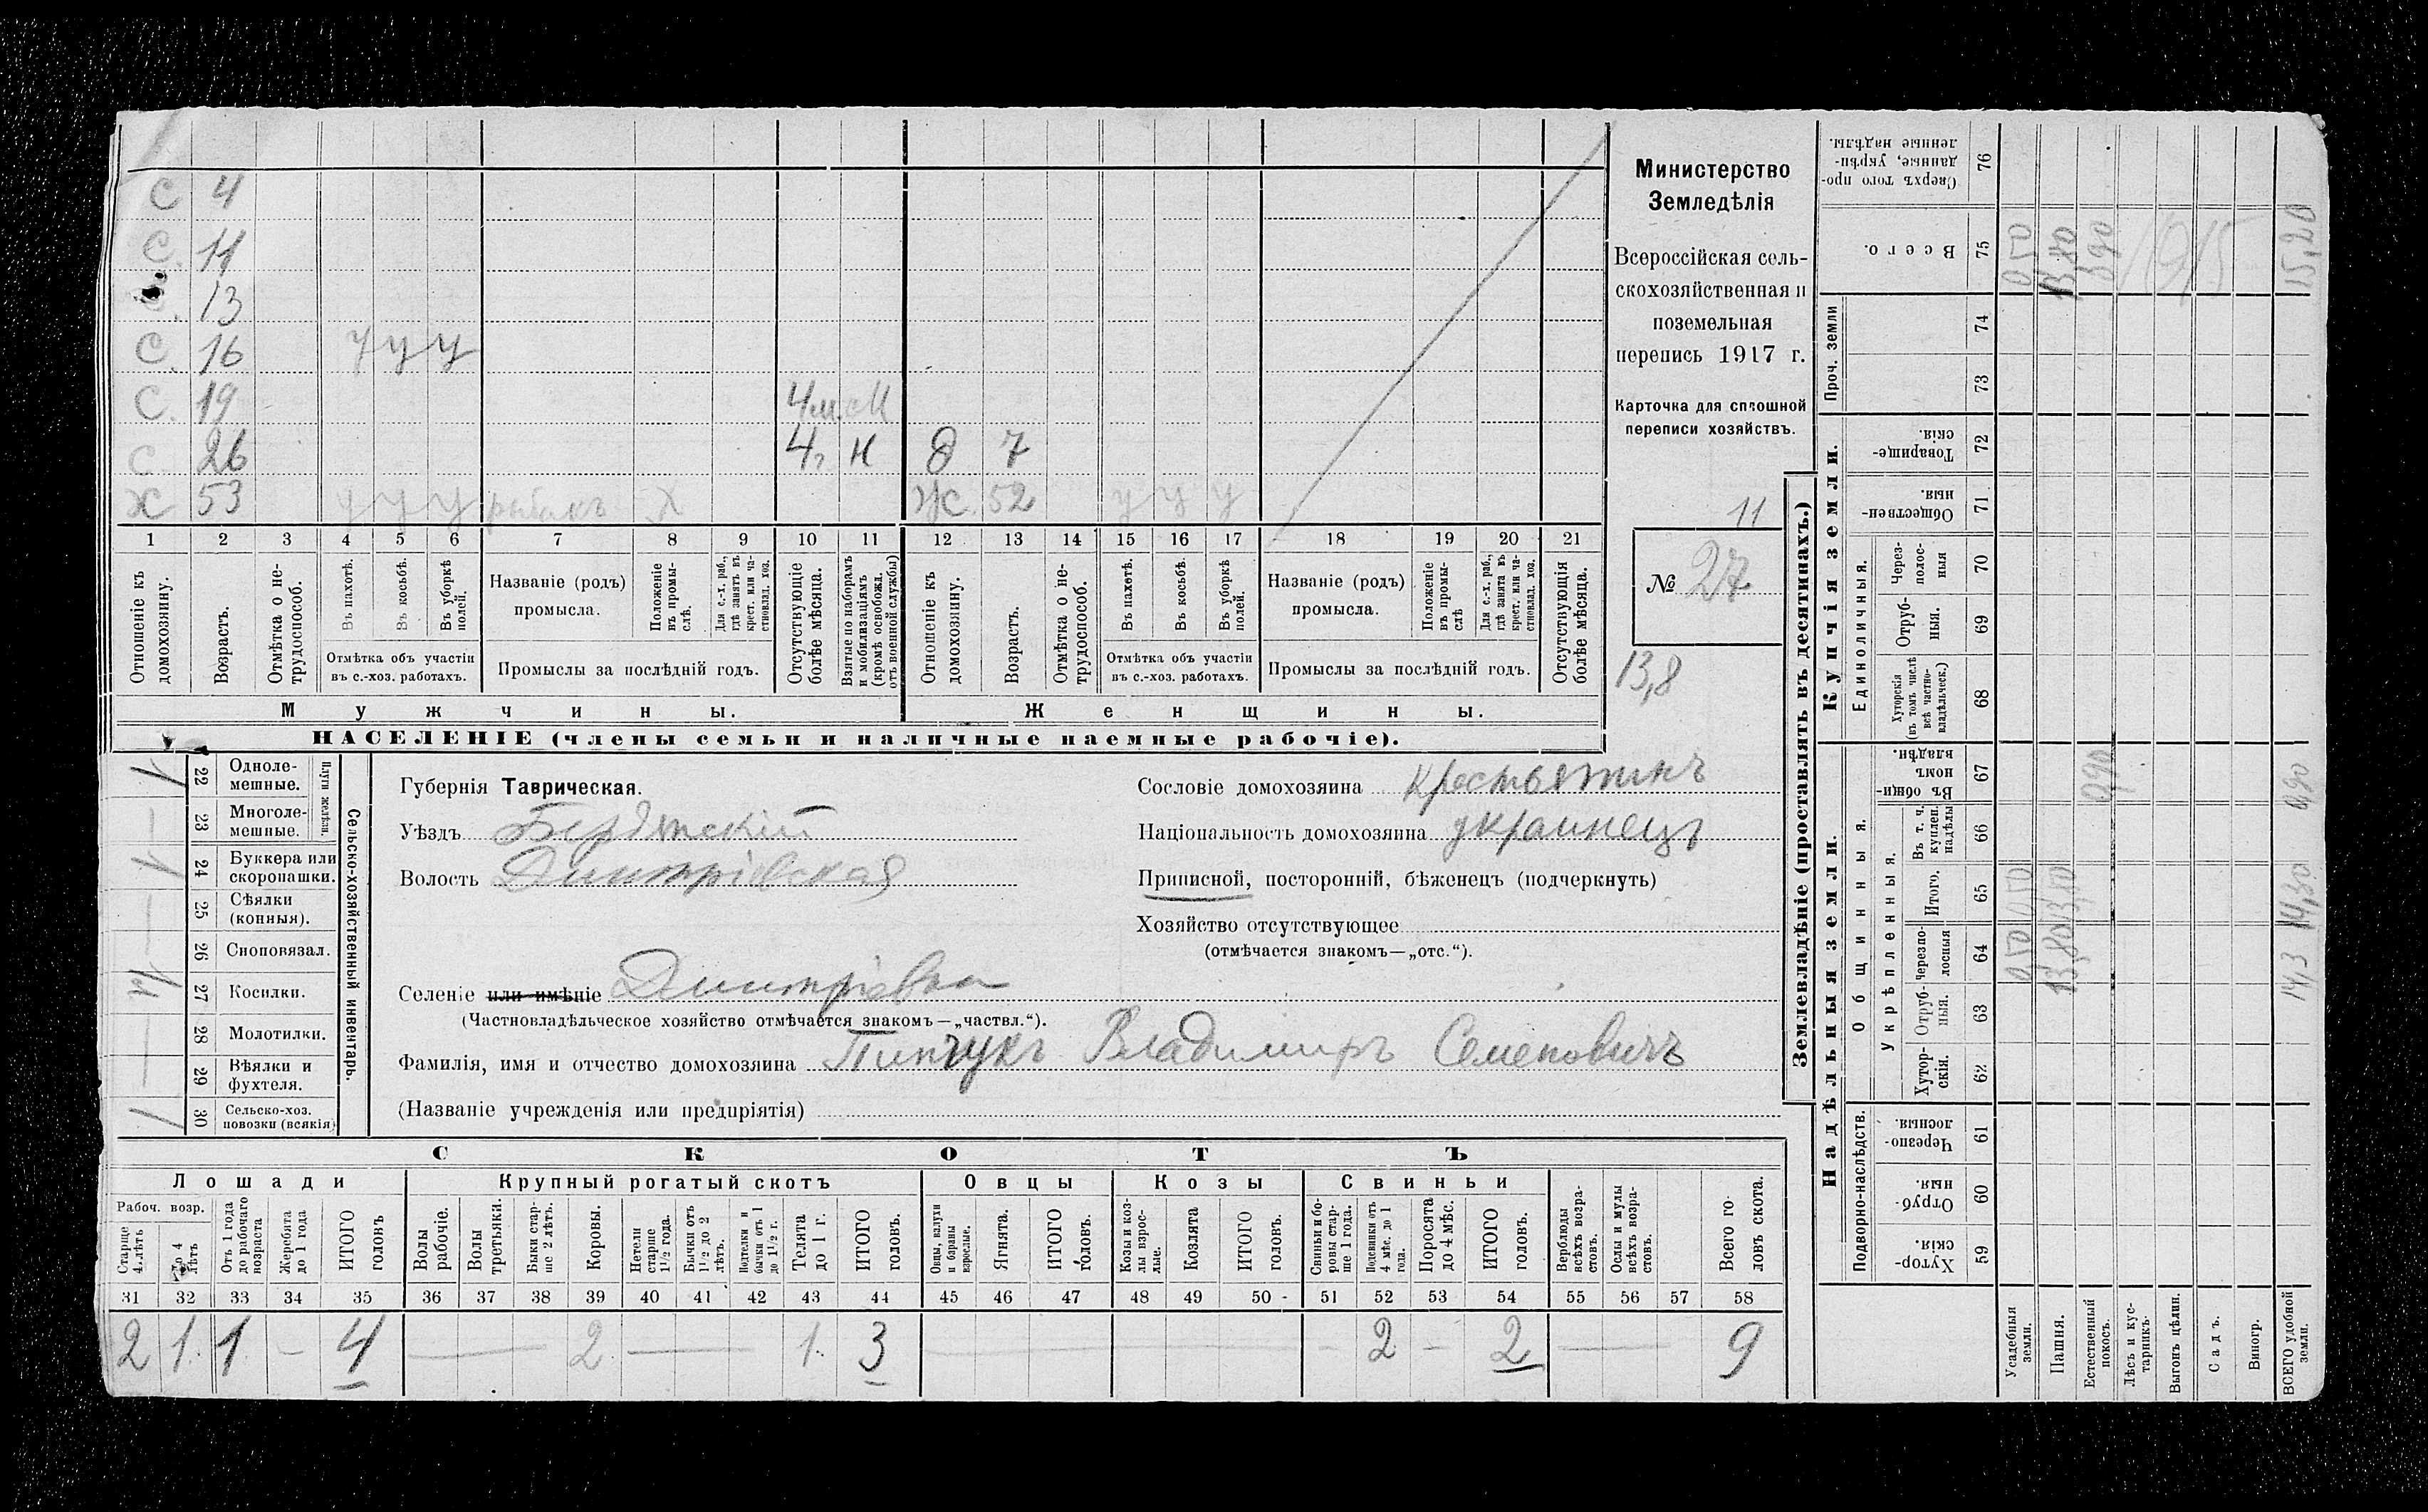 С 4
С. 11
С. 13
С. 16 у у у
С. 19 4 м. М
С 26 4 г Н д 7
Х 53 у у у рыбакъ Х Ж. 52 у у у
1 2 3 4 5 6 7 8 9 10 11 12 13 14 15 16 17 18 19 20 21
Отношеніе къ домохозяину.
Возрастъ.
Отмѣтка о нетрудоспособ.
Въ пахотѣ.
Въ косьбѣ.
Въ уборкѣ полей.
Отмѣтка объ участіи въ с.-хоз. работахъ.
Названіе (родъ) промысла.
Положеніе въ промыслѣ.
Для с.-х. раб., гдѣ занятъ въ крест. или частновлад. хоз.
Промыслы за послѣдній годъ.
Отсутствующіе болѣе мѣсяца.
Взятые по наборамъ и мобилизаціямъ (кромѣ освобожд. отъ военной службы)
Отношеніе къ домохозяину.
Возрастъ.
Отмѣтка о нетрудоспособ.
Въ пахотѣ.
Въ косьбѣ.
Въ уборкѣ полей.
Отмѣтка объ участіи въ с.-хоз. работахъ.
Названіе (родъ) промысла.
Положеніе въ промыслѣ
Для с.-х. раб., гдѣ занята въ крест. или частновлад. хоз.
Промыслы за послѣдній годъ.
Отсутствующія болѣе мѣсяца.
Мужчины. Женщины.
НАСЕЛЕНІЕ (члены семьи и наличные наемные рабочіе).
Министерство
Земледѣлія
Всероссійская сель-
скохозяйственная и
поземельная
перепись 1917 г.
Карточка для сплошной
переписи хозяйствъ.
11
№ 27
13,8
Сельско-хозяйственный инвентарь.
Плуги желѣзн.
22 Одноле-
мешные.
1
23 Многоле-
мешные.
—
24 Буккера или
скоропашки.
1
25 Сѣялки
(конныя).
—
26 Сноповязал.
—
27 Косилки.
28 Молотилки.
—
29 Вѣялки и
фухтеля.
—
30 Сельско-хоз.
повозки (всякія)
1
Губернія Таврическая.
Уѣздъ Бердянскій
Волость Дмитріевская
Сословіе домохозяина крестьянинъ
Національность домохозяина украинецъ
Приписной, посторонній, бѣженецъ (подчеркнуть)
Хозяйство отсутствующее
(отмѣчается знакомъ—„отс.“).
Селеніе или имѣніе Дмитріевка
(Частновладѣльческое хозяйство отмѣчается знакомъ—„частвл.“).
Фамилія, имя и отчество домохозяина Пипчукъ Владимиръ Семеновичъ
(Названіе учрежденія или предпріятія)
СКОТЪ
Лошади Крупный рогатый скотъ Овцы Козы Свиньи
Рабоч. возр.
Старше 4 лѣтъ
До 4 лѣтъ
Отъ 1 года до рабочаго возраста
Жеребята до 1 года
ИТОГО головъ
Волы рабочіе.
Волы третьяки.
Быки старше 2 лѣтъ.
Коровы.
Нетели старше 1½ года.
Бычки отъ 1½ до 2 лѣтъ.
Подтелки и бычки отъ 1 до 1½ г.
Телята до 1 г.
ИТОГО головъ.
Овцы, валухи и бараны взрослые.
Ягнята.
ИТОГО головъ.
Козы и козлы взрослые.
Козлята
ИТОГО головъ.
Свиньи и боровы старше 1 года.
Подсвинки отъ 4 мѣс. до 1 года.
Поросята до 4 мѣс.
ИТОГО головъ.
Верблюды всѣхъ возрастовъ.
Ослы и мулы всѣхъ возрастовъ.
Всего головъ скота.
31 32 33 34 35 36 37 38 39 40 41 42 43 44 45 46 47 48 49 50 51 52 53 54 55 56 57 58
2 1. 1 — 4 — 2 — 1. 3 — — 2 — 2 — 9
Землевладѣніе (проставлять въ десятинахъ.)
Купчія земли.
Надѣльныя земли.
Сверхъ того проданные, укрѣпленные надѣлы. 76
Всего. 75 0,50 13,80 0,90 1915 15,20
Проч. земли 74
73
Товарищескія. 72
Общественныя. 71
Единоличныя.
Черезполосныя 70
Отрубныя. 69
Хуторскія (въ томъ числѣ всѣ частновладѣльческ.) 68
Общинныя.
Въ общиномъ владѣн. 67 0,90 0,90
Укрѣпленныя.
Въ т. ч. куплен. надѣлы 66
Итого. 65 0,50 13,80 14,30
Черезполосныя 64 0,50 13,80 14,3
Отрубныя. 63
Хуторскія. 62
Подворно-наслѣдств.
Черезполосныя. 61
Отрубныя. 60
Хуторскія. 59
Усадебныя земли.
Пашня.
Естественный покосъ.
Лѣсъ и кустарникъ.
Выгонъ цѣлин.
Садъ.
Виногр.
ВСЕГО удобной земли.